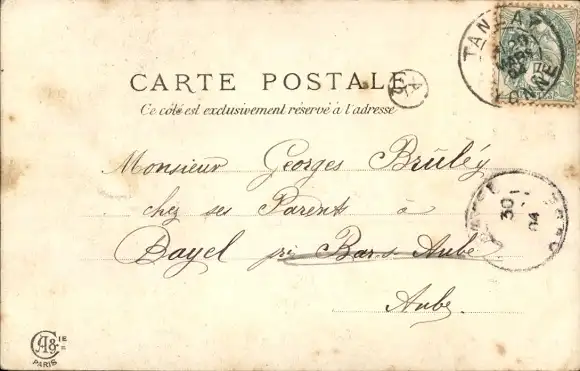 CARTE POSTALE
Ce côté est exclusivement réservé à l'adresse
TANLAY
YONNE
Monsieur Georges Brûley
chez ses Parents à
Bayel près Bar s Aube
Aube
30
04
A&
CIE
PARIS